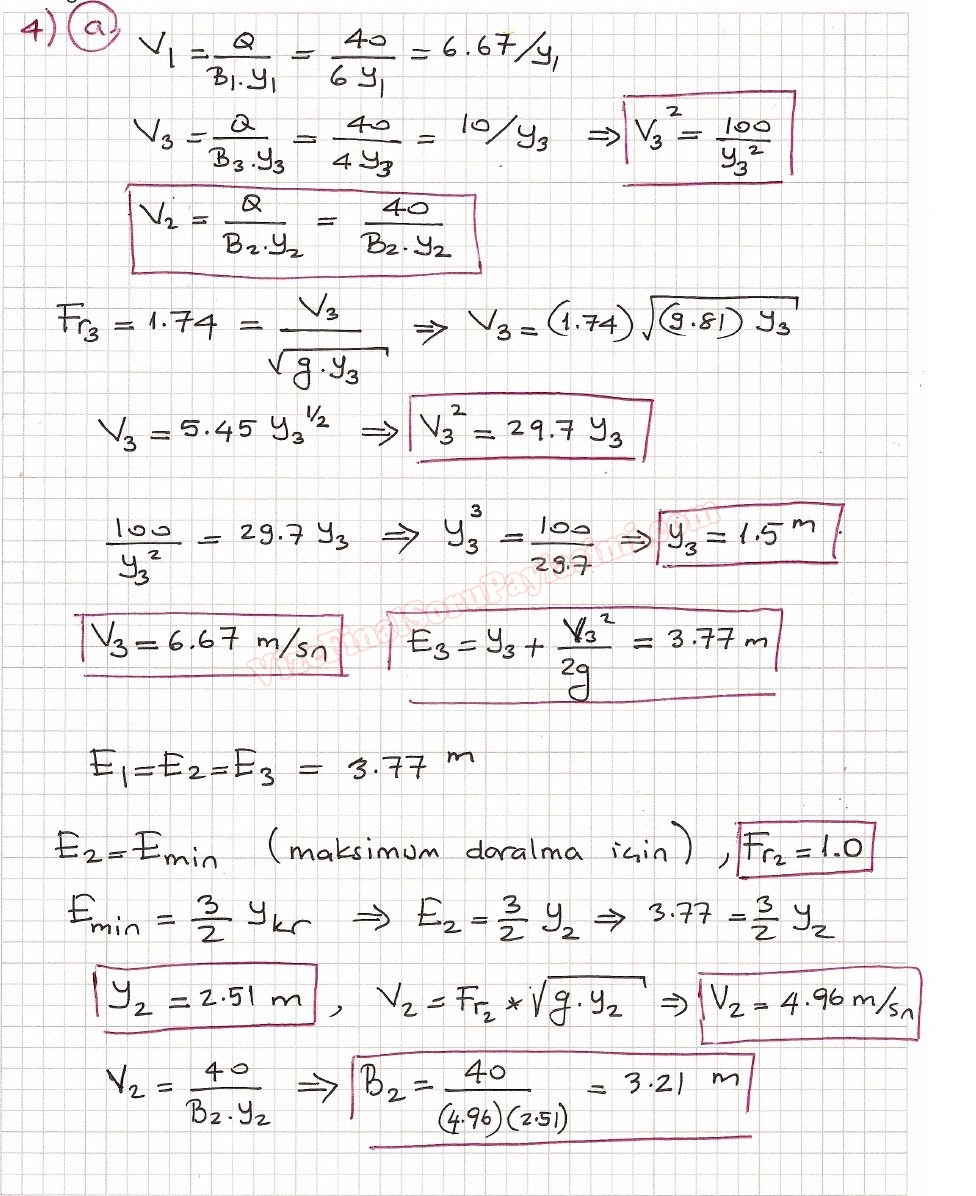 4) a)
V₁ = Q / (B₁.y₁) = 40 / (6 y₁) = 6.67/y₁
V₃ = Q / (B₃.y₃) = 40 / (4 y₃) = 10/y₃ ⇒ V₃² = 100 / y₃²
V₂ = Q / (B₂.y₂) = 40 / (B₂.y₂)
Fr₃ = 1.74 = V₃ / √(g.y₃) ⇒ V₃ = (1.74) √((9.81) y₃)
V₃ = 5.45 y₃^(1/2) ⇒ V₃² = 29.7 y₃
100 / y₃² = 29.7 y₃ ⇒ y₃³ = 100 / 29.7 ⇒ y₃ = 1.5 m
VizeFinalSoruPaylasimi.com
V₃ = 6.67 m/sn E₃ = y₃ + V₃² / 2g = 3.77 m
E₁ = E₂ = E₃ = 3.77 m
E₂ = Emin (maksimum daralma için), Fr₂ = 1.0
Emin = 3/2 ykr ⇒ E₂ = 3/2 y₂ ⇒ 3.77 = 3/2 y₂
y₂ = 2.51 m, V₂ = Fr₂ * √(g.y₂) ⇒ V₂ = 4.96 m/sn
V₂ = 40 / (B₂.y₂) ⇒ B₂ = 40 / (4.96)(2.51) = 3.21 m